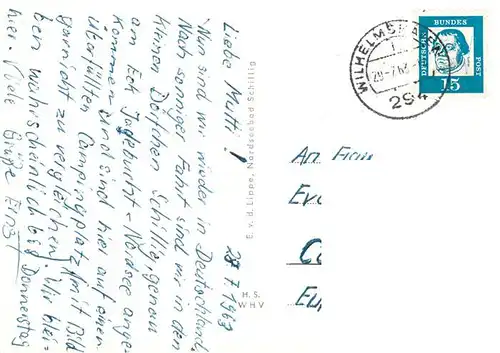 28.7.1963
Liebe Mutti!
Nun sind wir wieder in Deutschland.
Nach sonniger Fahrt sind wir in den
kleinen Dörfchen Schillig, genau
am Eck Jadebucht - Nordsee ange-
kommen und sind hier auf einen
überfüllten Campingplatz (mit Bild
garnicht zu vergleichen). Wir blei-
ben wahrscheinlich bis Donnerstag
hier. Viele Grüße
E. v. d. Lippe, Nordseebad Schillig
H. S.
W H V
WILHELMSHAVEN
294
DEUTSCHE
BUNDES
POST
15
An